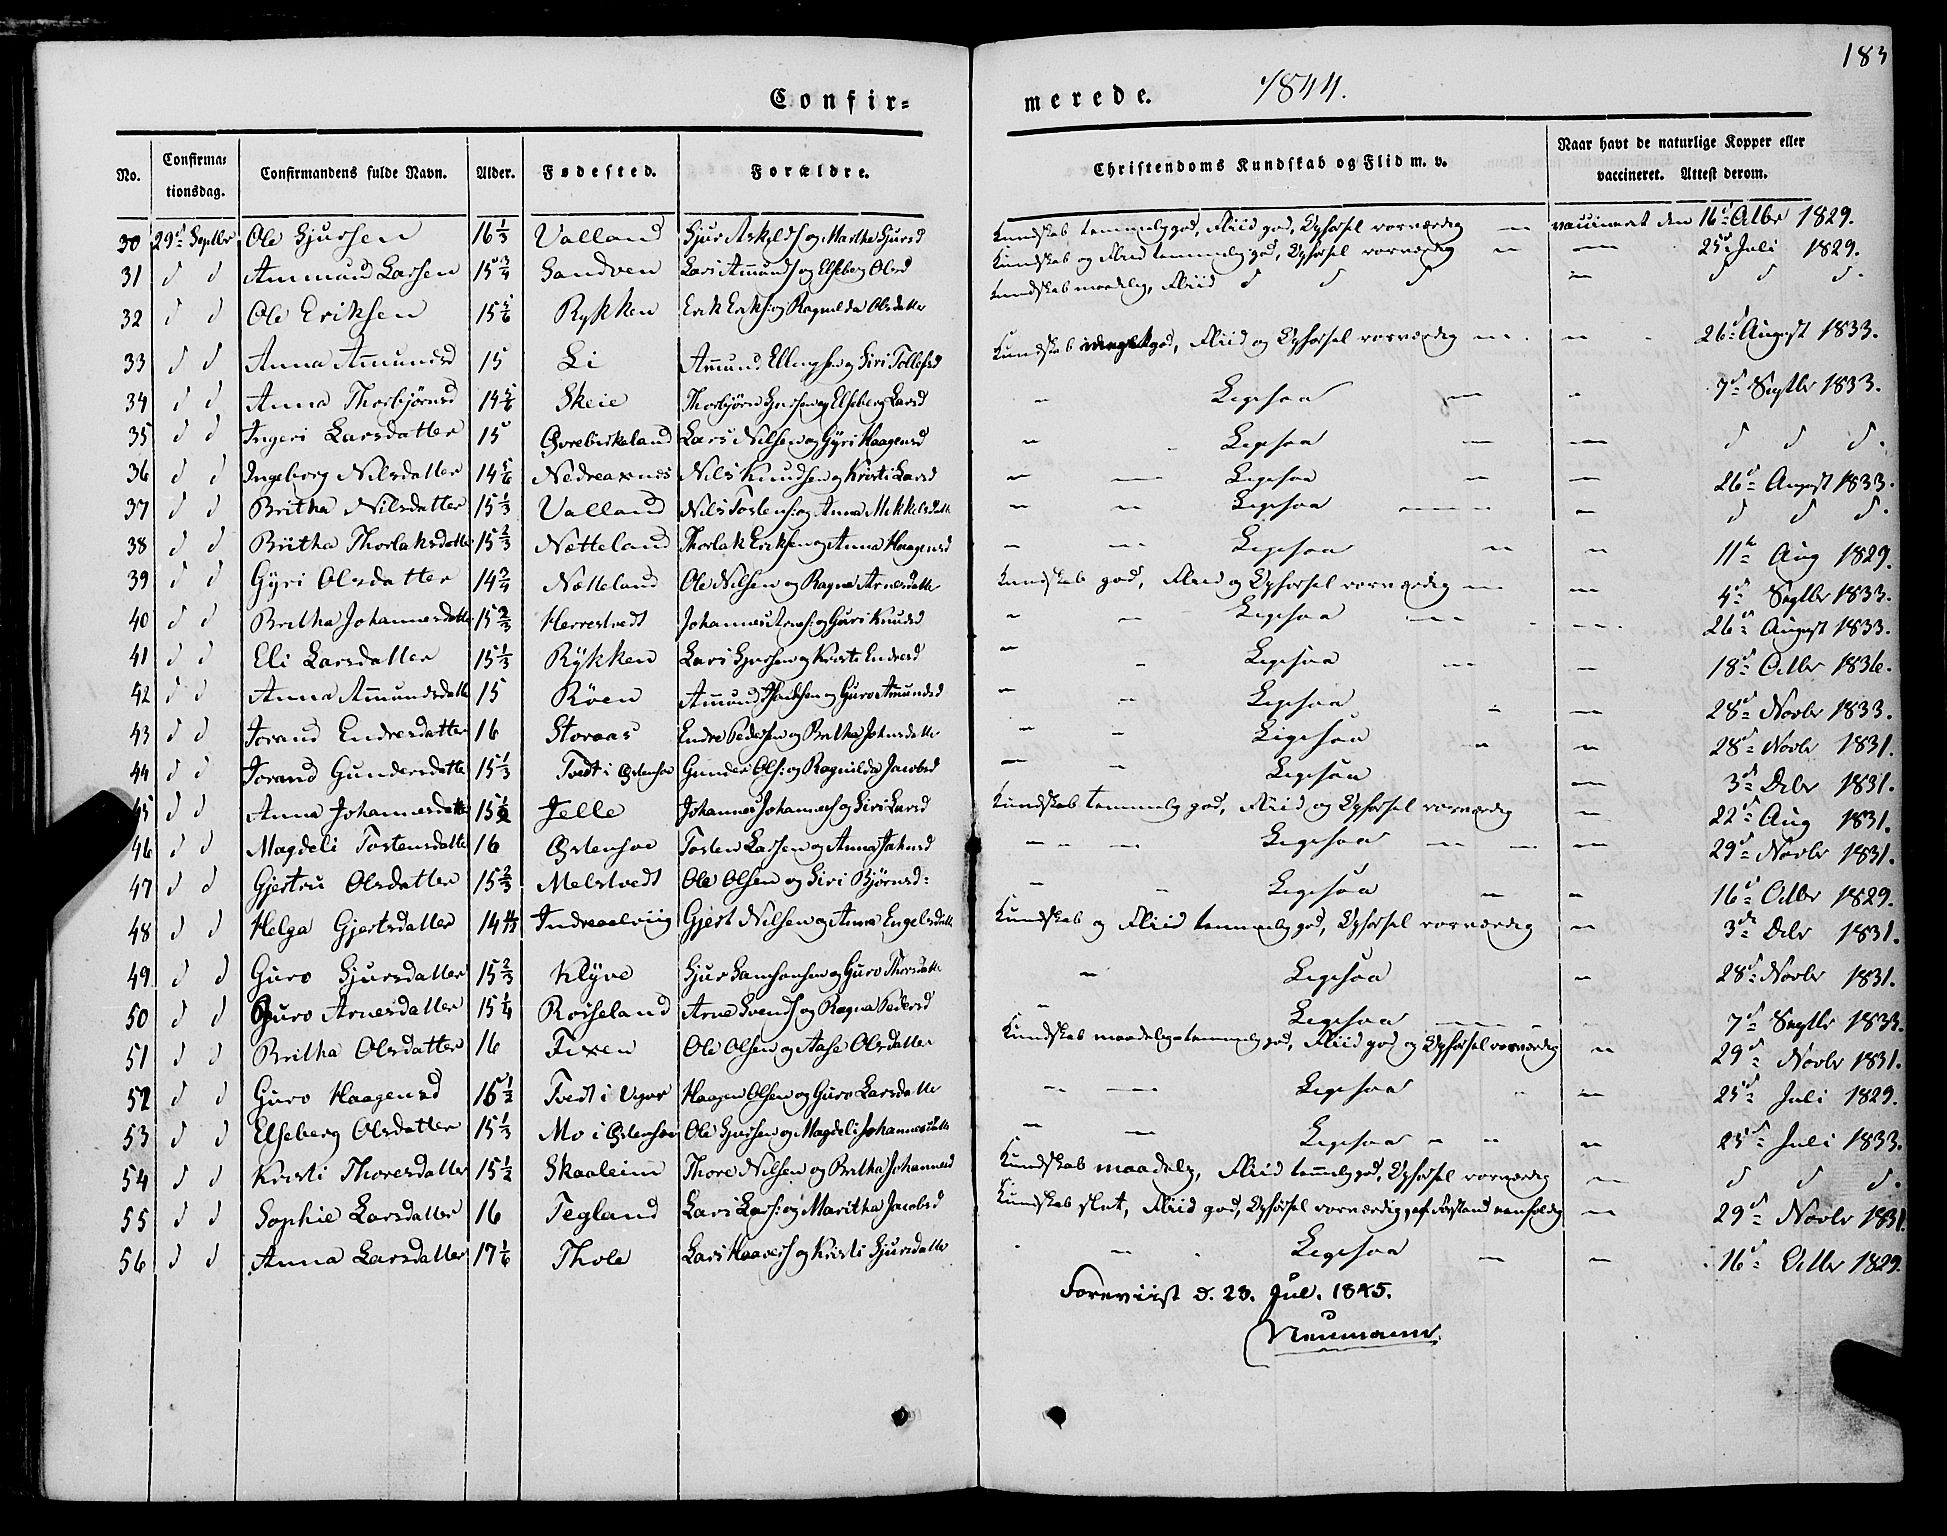 183
Confir- merede. 1844.
No. Confirmationsdag. Confirmandens fulde Navn. Alder. Fødested. Forældre. Christendoms Kundskab og Flid m. v. Naar havt de naturlige Kopper eller vaccineret. Attest derom.
30 29d Septbr Ole Sjursen 16 1/3 Valland Sjur og Martha Sjursd Kundskab temmelig god, Fliid god, Opførsel vørværdig — vaccineret den 16d Octbr 1829.
31 d d Ammund Larsen 15 3/4 Sandven Lars Amunds og Elseberg Olsd Kundskab og Fliid temmelig god, Opførsel vørværdig — — 25d Juli 1829.
32 d d Ole Eriksen 15 5/6 Rykken Erik Eriks: og Ragnilda Olsdatter Kundskab maadelig, Fliid d d d — d d d.
33 d d Anna Amundsd 15 Li Amund Ellingsen og Siri Tollefsd Kundskab god, Fliid og Opførsel vørværdig — — 26d August 1833.
34 d d Anna Thorbjørnsd 14 5/6 Skeie Thorbjørn og Elseberg Larsd — Ligesaa — — 7d Septbr 1833.
35 d d Ingeri Larsdatter 15 Øvrebirkeland Lars Nilsen og Gyri Haagensd — Ligesaa — — d d d.
36 d d Ingeborg Nilsdatter 14 5/6 Nedreaxnes Nils Knudsen og Kristi Larsd — — Ligesaa — — 26d August 1833.
37 d d Britha Nilsdatter 15 1/3 Valland Nils Tostens: og Anna Mikkelsdatt — — Ligesaa — — d d d.
38 d d Britha Thorlaksdatte 15 2/3 Netteland Thorlak Eriksen og Anna Haagensd — — Ligesaa — — 11te Aug 1829.
39 d d Gyri Olsdatter 14 3/4 Netteland Ole Nilsen og Ragna Arnesdatte Kundskab god, Fliid og Opførsel vørværdig — — 4d Septbr 1833.
40 d d Britha Johannesdatte 15 2/3 Herrestvedt Johannes og Guri Knudsd — — Ligesaa — — 26d August 1833.
41 d d Eli Larsdatter 15 1/3 Rykken Lars Sjursen og Kristi Endresd — — Ligesaa — — 18d Octbr 1836.
42 d d Anna Amundsdatte 15 Røen Amund og Guro Amundsd — — Ligesaa — — 28d Novbr 1833.
43 d d Torand Endresdatter 16 Storaas Endre Pedersen og Britha Johnsdatte — — Ligesaa — — 28d Novbr 1831.
44 d d Torand Gundersdatte 15 1/3 Tvedt i Østensøe Gunder Ols: og Ragnilda Jacobsd — — Ligesaa — 3d Debr 1831.
45 d d Anna Johannesdatte 15 1/2 Jelle Johannes Johannes og Siri Larsd Kundskab temmelig god, Fliid og Opførsel vørværdig — 22d Aug 1831.
46 d d Magdeli Tostensdatte 16 Østensøe Tosten Larsen og Anna Johnsd — — Ligesaa — — — 29d Novbr 1831.
47 d d Gjertru Olsdatter 15 2/3 Melstvedt Ole Olsen og Siri Bjørnsd: — — Ligesaa — — 16d Octbr 1829.
48 d d Helga Gjertsdatter 14 11/12 Indreaalviig Gjert Nilsen og Anna Engelsdatte Kundskab og Fliid temmelig god, Opførsel vørværdig — 3d Debr 1831.
49 d d Guro Sjursdatter 15 2/3 Klyve Sjur Samsonsen og Guro Thorsdatte — Ligesaa — 28d Novbr 1831.
50 d d Guro Arnesdatter 15 1/4 Rosseland Arne Svends og Ragna Pedersd — Ligesaa — — 7d Septbr 1833.
51 d d Britha Olsdatter 16 Fixen Ole Olsen og Aase Olsdatter Kundskab maadelig-temmelig god, Fliid god og Opførsel vørværdig — 29d Novbr 1831.
52 d d Guro Haagensd 16 1/2 Tvedt i Vigør Haagen Olsen og Guro Larsdatte — — Ligesaa — — 25d Juli 1829.
53 d d Elseberg Olsdatter 15 1/3 Mo i Østensøe Ole Sjursen og Magdeli Johannesdatte — — Ligesaa — — — 25d Juli 1833.
54 d d Kristi Thoresdatter 15 1/2 Skaaleim Thore Nilsen og Britha Johannesd Kundskab maadelig, Fliid temmelig god, Opførsel vørværdig — d d d.
55 d d Sophie Larsdatter 16 Tegland Lars Lars: og Maritha Jacobsd Kundskab slet, Fliid god, Opførsel vørværdig, af Forstand eenfoldig — 29d Novbr 1831.
56 d d Anna Larsdatter 17 1/6 Thole Lars Haavers og Kristi Sjursdatter — Ligesaa — — 16d Octbr 1829.
Foreviist d. 23. Jul. 1845.
Neumann.